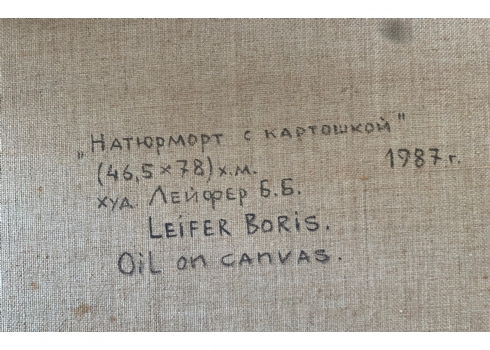 „Натюрморт с картошкой"
(46,5×78) х.м. 1987 г.
худ. Лейфер Б.Б.
LEIFER BORIS.
OiL on CANVAS.